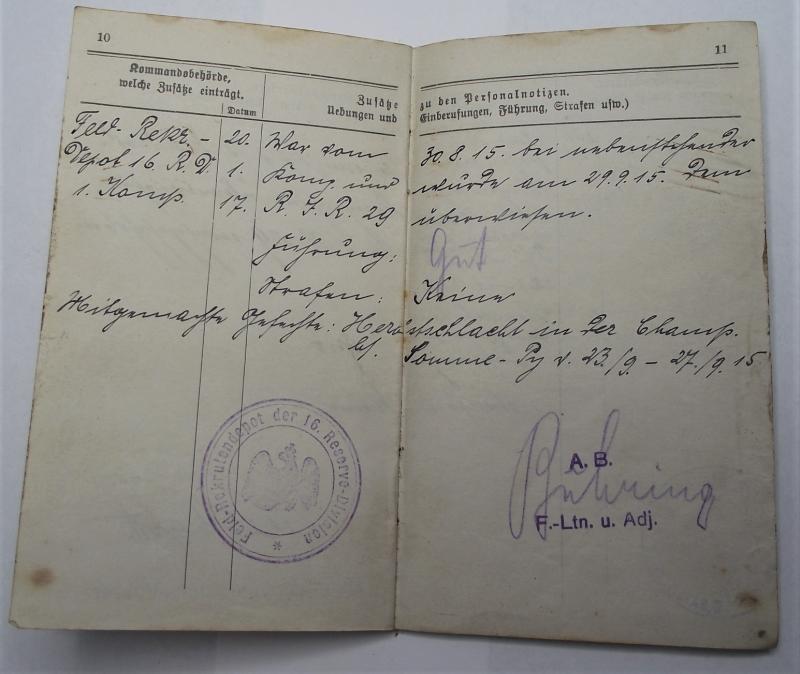 10
11
Kommandobehörde,
welche Zusätze einträgt.
Datum
Zusätze zu den Personalnotizen.
Uebungen und Einberufungen, Führung, Strafen usw.)
Feld-Rekr.- 20. War vom 30.8.15. bei nebenstehender
Depot 16. R. D. 1. Komp. und wurde am 29.9.15. dem
1. Komp. 17. R. I. R. 29 überwiesen.
Führung: Gut
Strafen: Keine
Mitgemachte Gefechte: Herbstschlacht in der Champ.
bs. Somme-Py v. 23./9. – 27./9. 15.
Feld-Rekrutendepot der 16. Reserve-Division
A. B.
F.-Ltn. u. Adj.